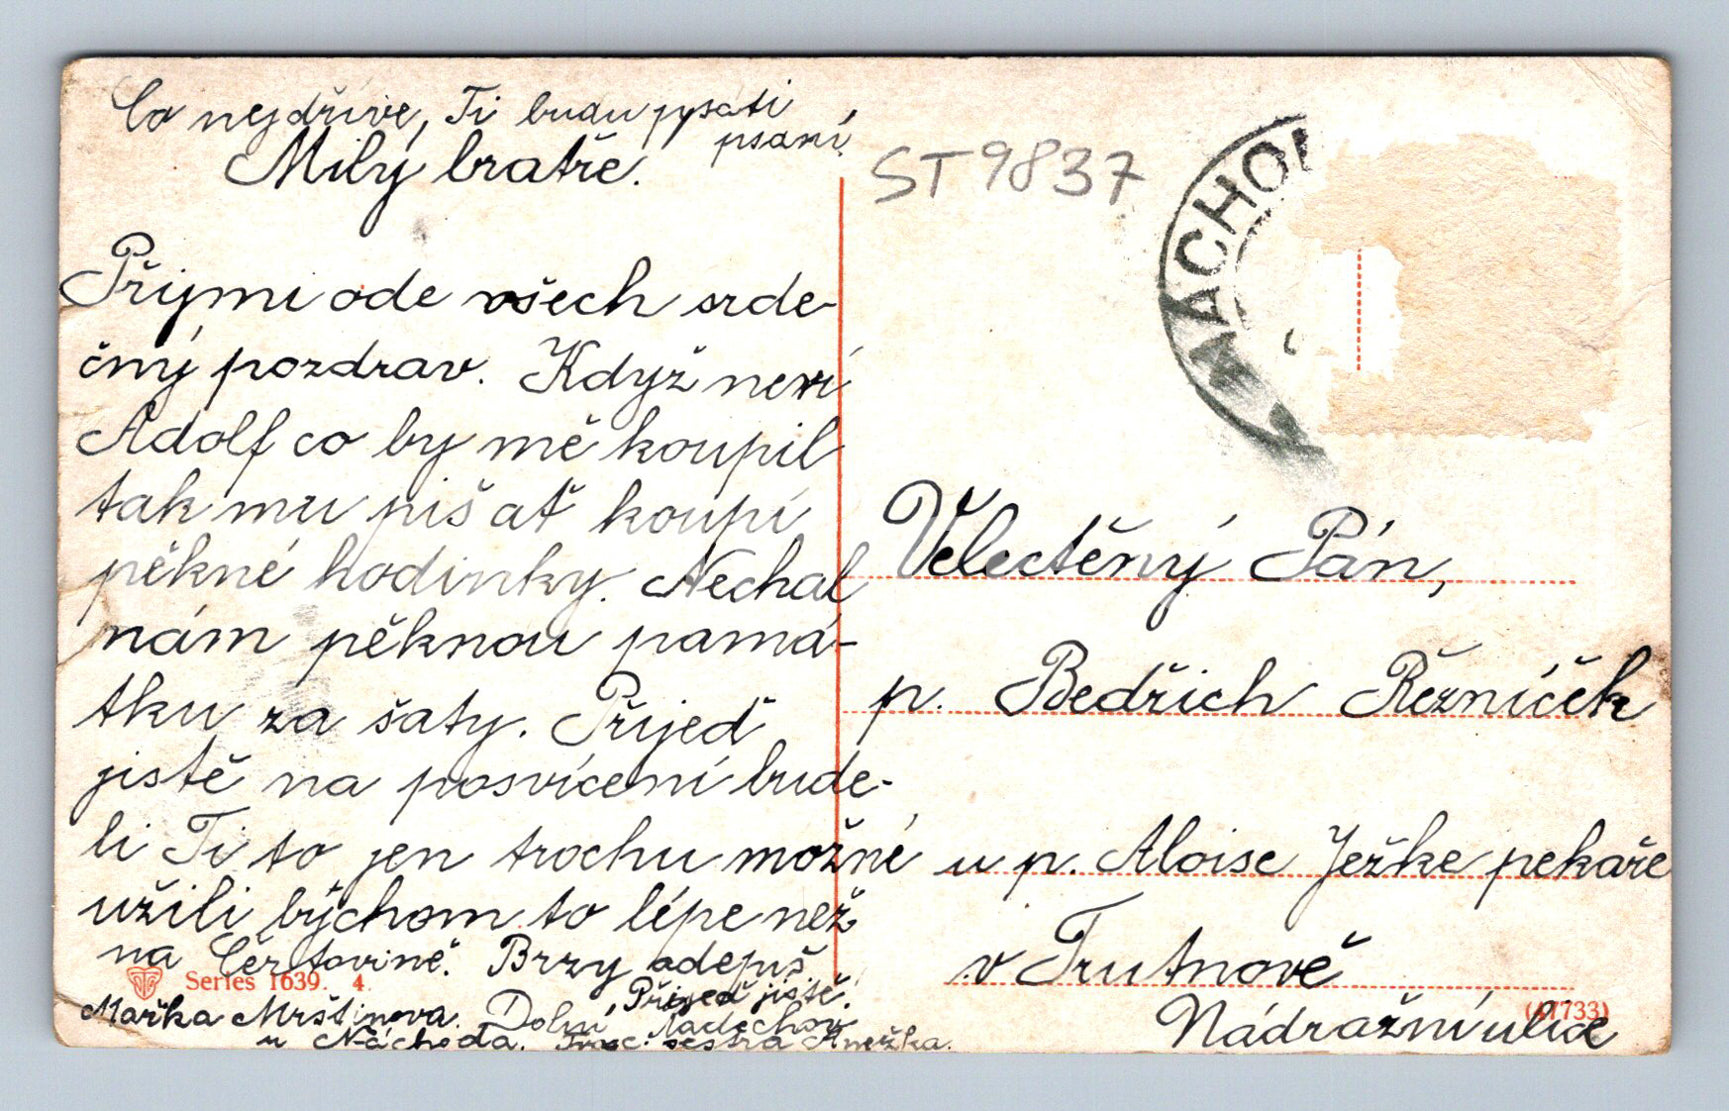 Co nejdříve, Ti budu pysati
psaní.
Milý bratře.
Příjmi ode všech srde-
čný pozdrav. Když neví
Adolf co by mě koupil
tak mu piš ať koupí
pěkné hodinky. Nechal
nám pěknou pamá-
tku za šaty. Přijeď
jistě na posvícení bude-
li Ti to jen trochu možné
užili býchom to lépe než
na Čertovině. Brzy odepiš
Přijeď jistě.
Mařka Mrštinova. Dolní
u Náchoda. sestra Anežka.
Series 1639. 4.
ST9837
NÁCHOD
Velectěný Pán,
p. Bedřich Řezníček
u p. Aloise Ježke pekaře
v Trutnově
Nádražní ulice